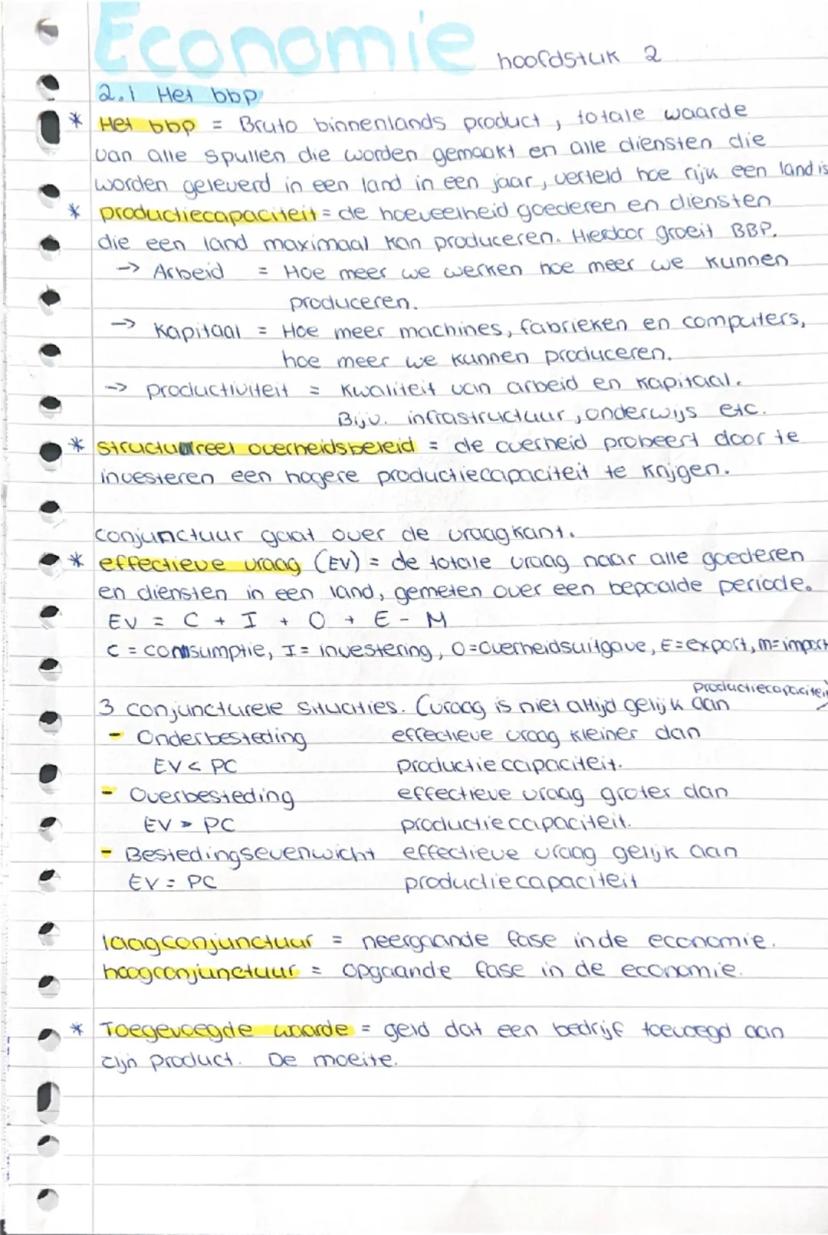 Economie hoofdstuk 2
2.1 Het bbp
* Het bbp = Bruto binnenlands product, totale waarde
van alle spullen die worden gemaakt en alle diensten die
worden geleverd in een land in een jaar, verteld hoe rijk een land is
* productiecapaciteit = de hoeveelheid goederen en diensten
die een land maximaal kan produceren. Hierdoor groeit BBP.
-> Arbeid = Hoe meer we werken hoe meer we kunnen
produceren.
-> Kapitaal = Hoe meer machines, fabrieken en computers,
hoe meer we kunnen produceren.
-> productiviteit = kwaliteit van arbeid en kapitaal.
Bijv. infrastructuur, onderwijs etc.
* structureel overheidsbeleid = de overheid probeert door te
investeren een hogere productiecapaciteit te krijgen.
conjunctuur gaat over de vraagkant.
* effectieve vraag (EV) = de totale vraag naar alle goederen
en diensten in een land, gemeten over een bepaalde periode.
EV = C + I + O + E - M
C = consumptie, I = investering, O=overheidsuitgave, E=export, m=import
productiecapaciteit
3 conjuncturele situaties. (vraag is niet altijd gelijk aan
- Onderbesteding effectieve vraag kleiner dan
EV < PC productiecapaciteit.
- Overbesteding effectieve vraag groter dan
EV > PC productiecapaciteit.
- Bestedingsevenwicht effectieve vraag gelijk aan
EV = PC productiecapaciteit
laagconjunctuur = neergaande fase in de economie.
hoogconjunctuur = opgaande fase in de economie.
* Toegevoegde waarde = geld dat een bedrijf toevoegd aan
zijn product. De moeite.